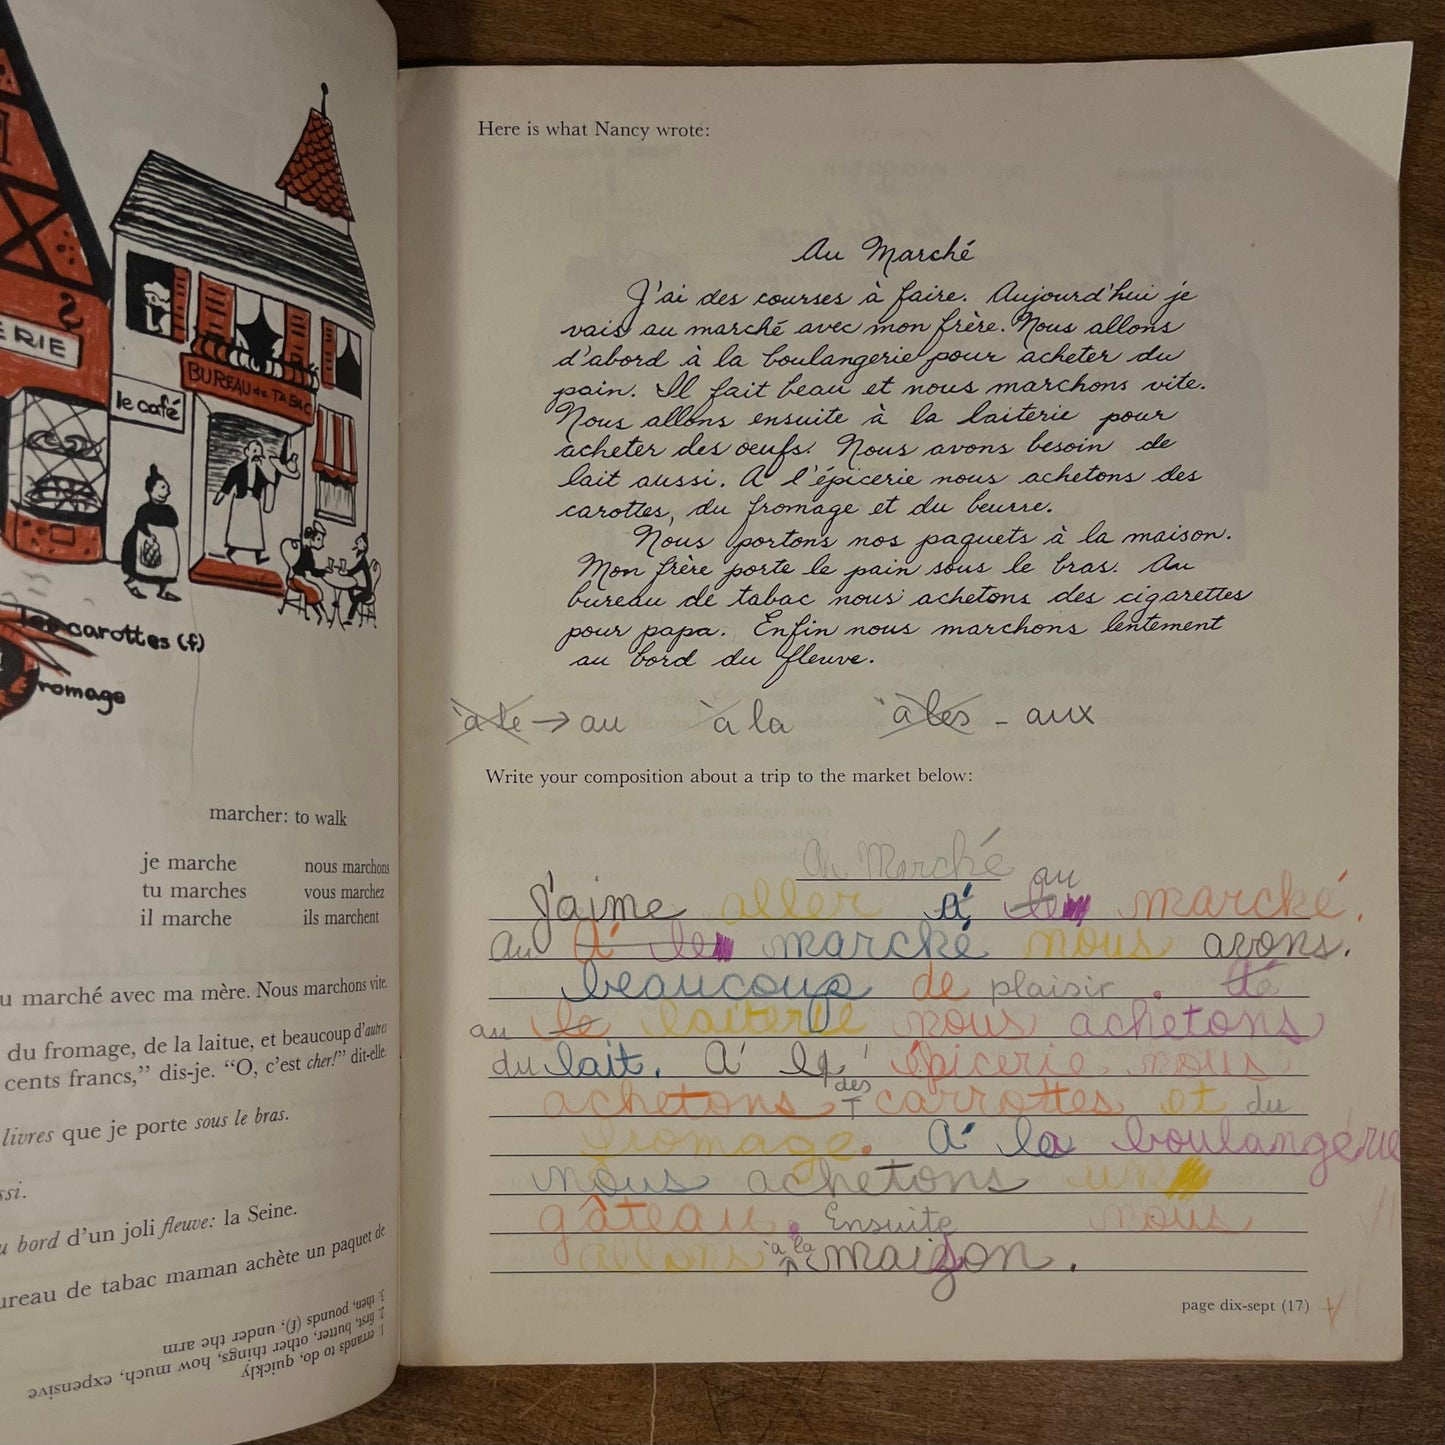 ERIE
le café
BUREAU de TABAC
les carottes (f)
fromage
marcher: to walk
je marche nous marchons
tu marches vous marchez
il marche ils marchent
u marché avec ma mère. Nous marchons vite.
du fromage, de la laitue, et beaucoup d'autres
cents francs,” dis-je. “O, c'est cher!” dit-elle.
livres que je porte sous le bras.
ssi.
u bord d'un joli fleuve: la Seine.
ureau de tabac maman achète un paquet de
1. errands to do, quickly
2. first, butter, other things, how much, expensive
3. then, pounds (f), under the arm
Here is what Nancy wrote:
Au Marché
J'ai des courses à faire. Aujourd'hui je
vais au marché avec mon frère. Nous allons
d'abord à la boulangerie pour acheter du
pain. Il fait beau et nous marchons vite.
Nous allons ensuite à la laiterie pour
acheter des oeufs. Nous avons besoin de
lait aussi. A l'épicerie nous achetons des
carottes, du fromage et du beurre.
Nous portons nos paquets à la maison.
Mon frère porte le pain sous le bras. Au
bureau de tabac nous achetons des cigarettes
pour papa. Enfin nous marchons lentement
au bord du fleuve.
à le → au à la à les - aux
Write your composition about a trip to the market below:
Au Marché
au
J'aime aller á le marché.
Au Á le marché nous avons.
beaucoup de plaisir.
au le laiterie nous achetons
du lait. Á l' épicerie nous
des
achetons carrottes et du
fromage. Á la boulangérie
nous achetons un
gâteau. Ensuite nous
allons à la maison.
page dix-sept (17)